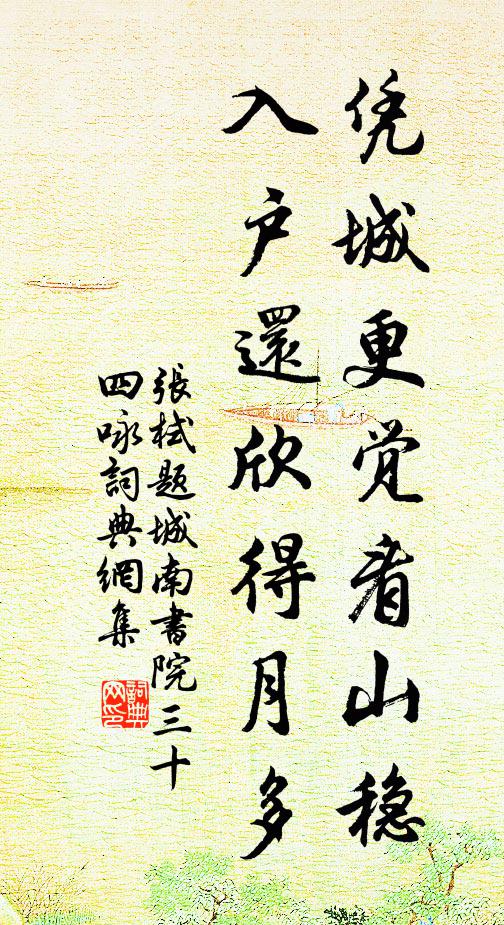 凭城更觉看山稳
入户還欣得月多
張栻题城南書院三十
四咏詞典網集
詞典网印